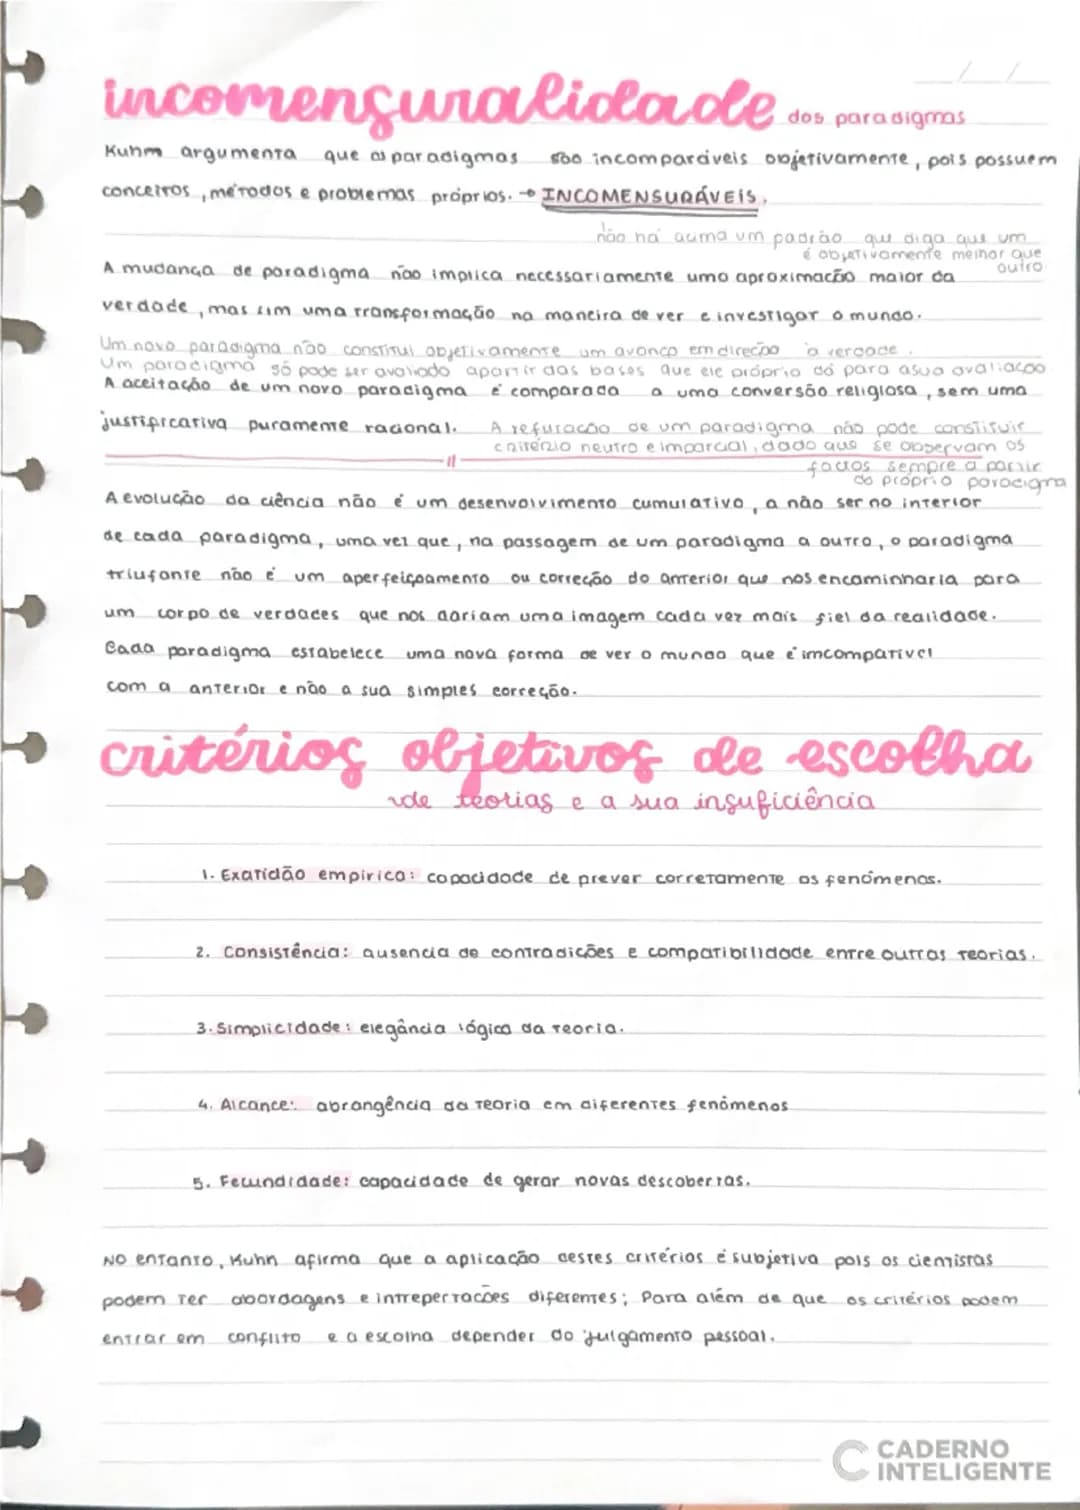 incomensuralidade dos paradigmas
Kuhn argumenta que os paradigmas são incomparáveis objetivamente, pois possuem
conceitos, métodos e problemas próprios. → INCOMENSURÁVEIS.
não há acima um padrão que diga que um
é objetivamente melhor que
outro
A mudança de paradigma não implica necessariamente uma aproximação maior da
verdade, mas sim uma transformação na maneira de ver e investigar o mundo.
Um novo paradigma não constitui objetivamente um avanço em direção à verdade.
Um paradigma só pode ser avaliado apartir das bases que ele próprio dá para a sua avaliação
A aceitação de um novo paradigma é comparada a uma conversão religiosa, sem uma
justificativa puramente racional. A refutação de um paradigma não pode constituir
critério neutro e imparcial, dado que se observam os
factos sempre a partir
do próprio paradigma
A evolução da ciência não é um desenvolvimento cumulativo, a não ser no interior
de cada paradigma, uma vez que, na passagem de um paradigma a outro, o paradigma
triunfante não é um aperfeiçoamento ou correção do anterior que nos encaminharia para
um corpo de verdades que nos dariam uma imagem cada vez mais fiel da realidade.
Cada paradigma estabelece uma nova forma de ver o mundo que é imcompatível
com a anterior e não a sua simples correção.
critérios objetivos de escolha
de teorias e a sua insuficiência
1. Exatidão empírica: capacidade de prever corretamente os fenómenos.
2. Consistência: ausencia de contradições e compatibilidade entre outras teorias.
3. Simplicidade: elegância lógica da teoria.
4. Alcance: abrangência da teoria em diferentes fenómenos
5. Fecundidade: capacidade de gerar novas descobertas.
No entanto, Kuhn afirma que a aplicação destes critérios é subjetiva pois os cientistas
podem ter abordagens e intrepertacões diferentes; Para além de que os critérios podem
entrar em conflito e a escolha depender do julgamento pessoal.
CADERNO
INTELIGENTE